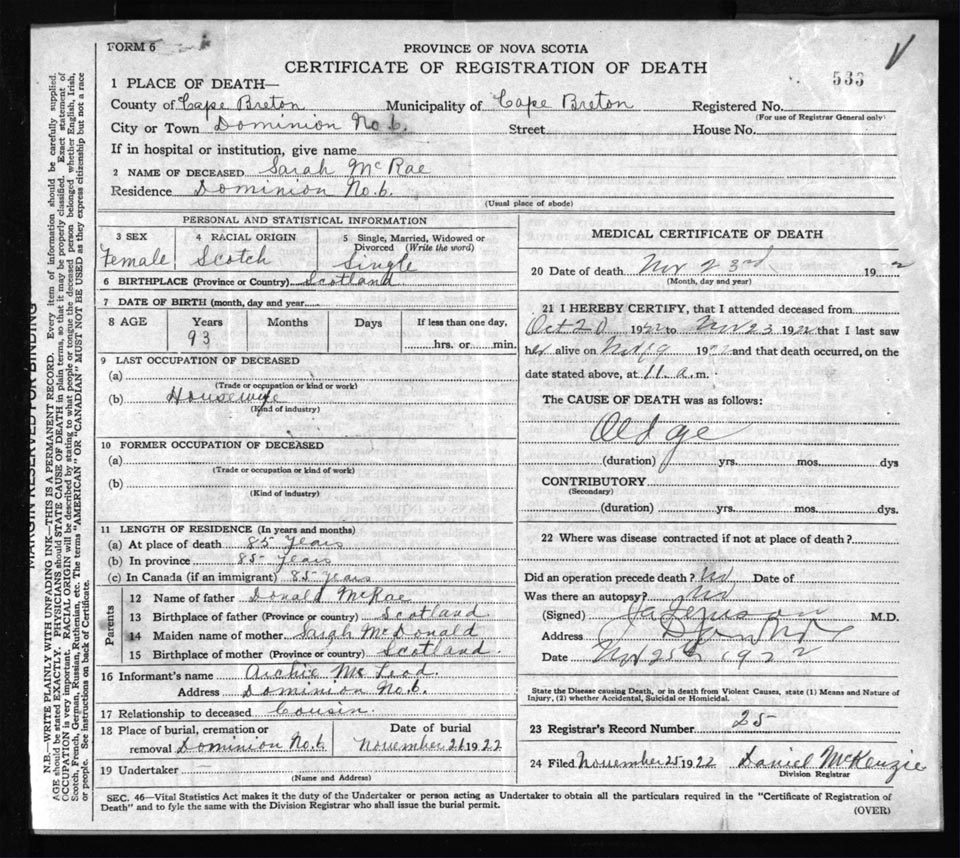 FORM 6
PROVINCE OF NOVA SCOTIA
CERTIFICATE OF REGISTRATION OF DEATH
533
1 PLACE OF DEATH—
County of Cape Breton Municipality of Cape Breton Registered No.
(For use of Registrar General only)
City or Town Dominion No 6. Street House No.
If in hospital or institution, give name
2 NAME OF DECEASED Sarah McRae
Residence Dominion No. 6.
(Usual place of abode)
PERSONAL AND STATISTICAL INFORMATION
3 SEX 4 RACIAL ORIGIN 5 Single, Married, Widowed or
Divorced (Write the word)
Female Scotch Single
6 BIRTHPLACE (Province or Country) Scotland
7 DATE OF BIRTH (month, day and year)
8 AGE Years Months Days If less than one day,
93 hrs. or min.
9 LAST OCCUPATION OF DECEASED
(a)
(Trade or occupation or kind or work)
(b) Housewife
(Kind of industry)
10 FORMER OCCUPATION OF DECEASED
(a)
(Trade or occupation or kind of work)
(b)
(Kind of industry)
11 LENGTH OF RESIDENCE (In years and months)
(a) At place of death 85 Years
(b) In province 85 Years
(c) In Canada (if an immigrant) 85 Years
Parents
12 Name of father Donald McRae
13 Birthplace of father (Province or country) Scotland
14 Maiden name of mother Sarah McDonald
15 Birthplace of mother (Province or country) Scotland.
16 Informant's name Archie McLeod.
Address Dominion No. 6.
17 Relationship to deceased Cousin.
18 Place of burial, cremation or Date of burial
removal Dominion No. 6 November 26 1922
19 Undertaker
(Name and Address)
MEDICAL CERTIFICATE OF DEATH
20 Date of death Nov 23rd 19 2
(Month, day and year)
21 I HEREBY CERTIFY, that I attended deceased from
Oct 20 1922 to Nov 23 1922 that I last saw
her alive on Nov 19 1922 and that death occurred, on the
date stated above, at 11. a. m.
The CAUSE OF DEATH was as follows:
Old age
(duration) yrs. mos. dys
CONTRIBUTORY
(Secondary)
(duration) yrs. mos. dys.
22 Where was disease contracted if not at place of death?
Did an operation precede death? No Date of
Was there an autopsy? No
(Signed) M.D.
Address
Date Nov 25th 1922
State the Disease causing Death, or in death from Violent Causes, state (1) Means and Nature of
Injury, (2) whether Accidental, Suicidal or Homicidal.
23 Registrar's Record Number 25
24 Filed November 25 1922 Daniel McKenzie
Division Registrar
SEC. 46—Vital Statistics Act makes it the duty of the Undertaker or person acting as Undertaker to obtain all the particulars required in the "Certificate of Registration of
Death" and to fyle the same with the Division Registrar who shall issue the burial permit.
(OVER)
MARGIN RESERVED FOR BINDING
N.B.—WRITE PLAINLY WITH UNFADING INK—THIS IS A PERMANENT RECORD. Every item of information should be carefully supplied.
AGE should be stated EXACTLY. PHYSICIANS should STATE CAUSE OF DEATH in plain terms, so that it may be properly classified. Exact statement of
OCCUPATION is very important. RACIAL ORIGIN will be described by stating to what people or tongue the deceased person belonged whether English, Irish,
Scotch, French, German, Russian, Ruthenian, etc. The terms "AMERICAN" OR "CANADIAN" MUST NOT BE USED as they express citizenship but not a race
or people. See instructions on back of Certificate.